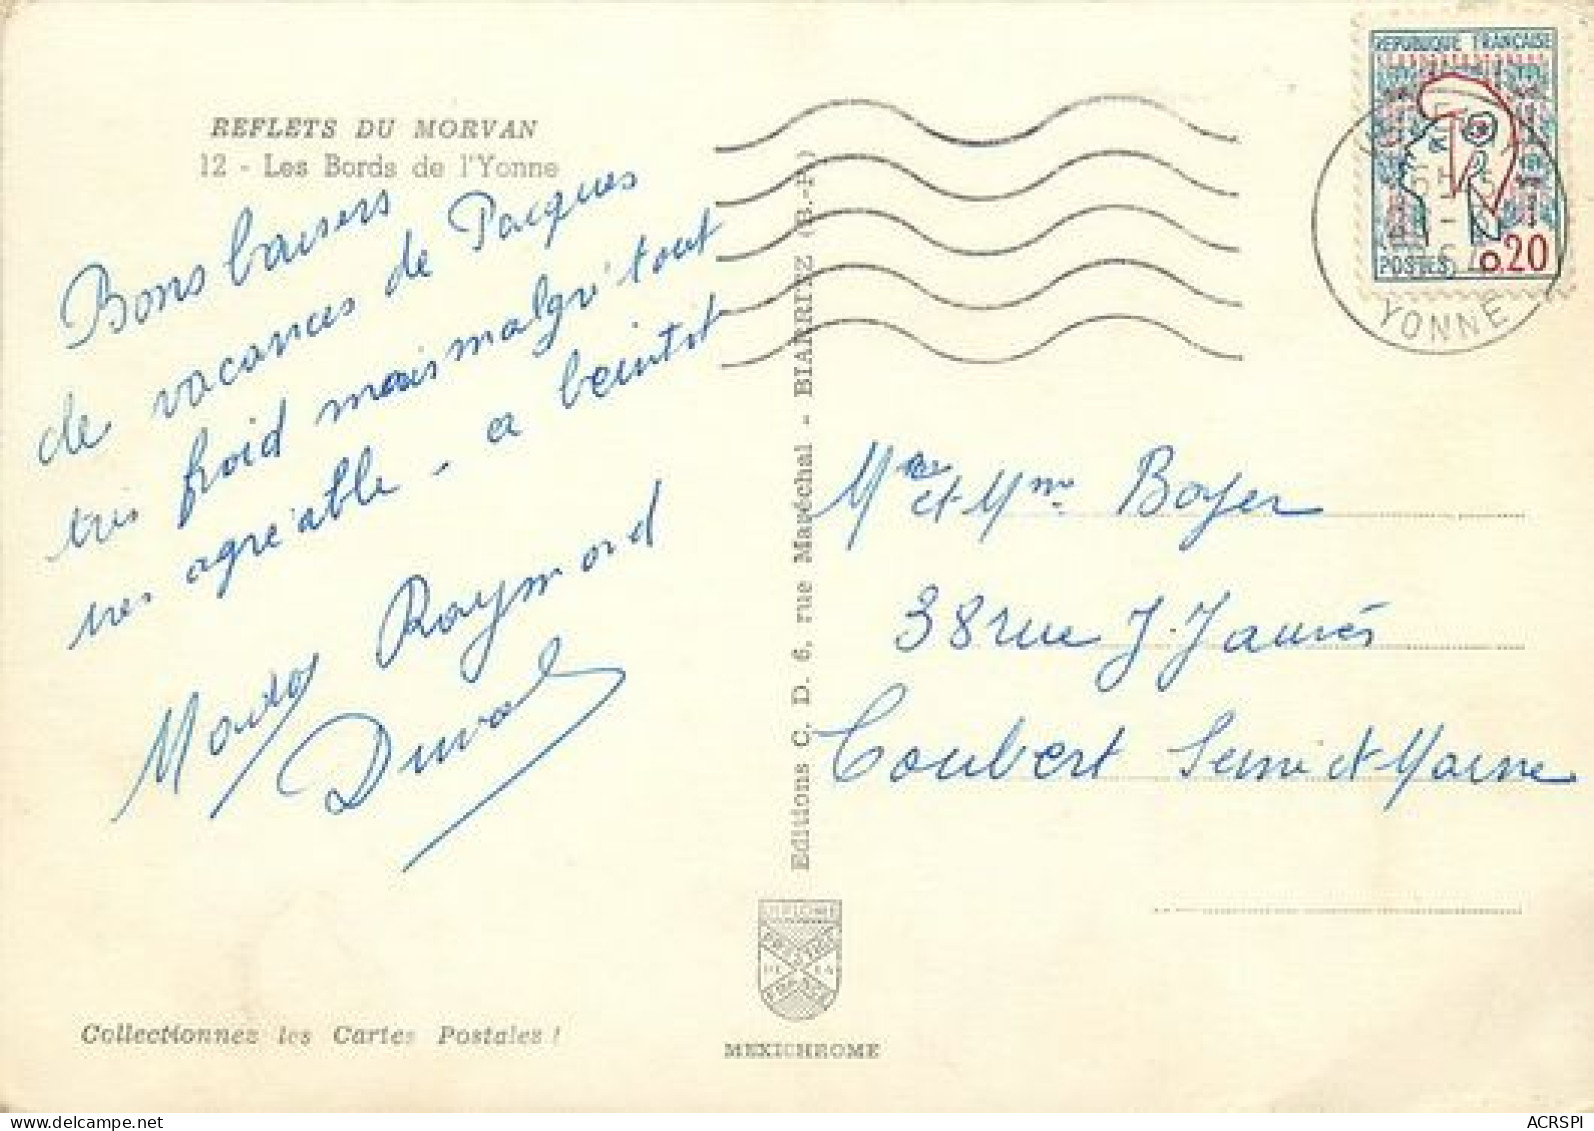 REFLETS DU MORVAN
12 - Les Bords de l'Yonne
Bons baisers
de vacances de Pacques
très froid mais malgré tout
tres agréable - a beintot
Raymond
Duval
Collectionnez les Cartes Postales !
Editions C. D. 6, rue Maréchal - BIARRITZ (B.-P.)
DIPLOME
PRESTIGE
DE LA
FRANCE
MEXICHROME
REPUBLIQUE FRANÇAISE
POSTES 0.20
YONNE
Mr et Mme Boyer
38 rue J. Jaurés
Coubert Seine et Marne
ACRSPI